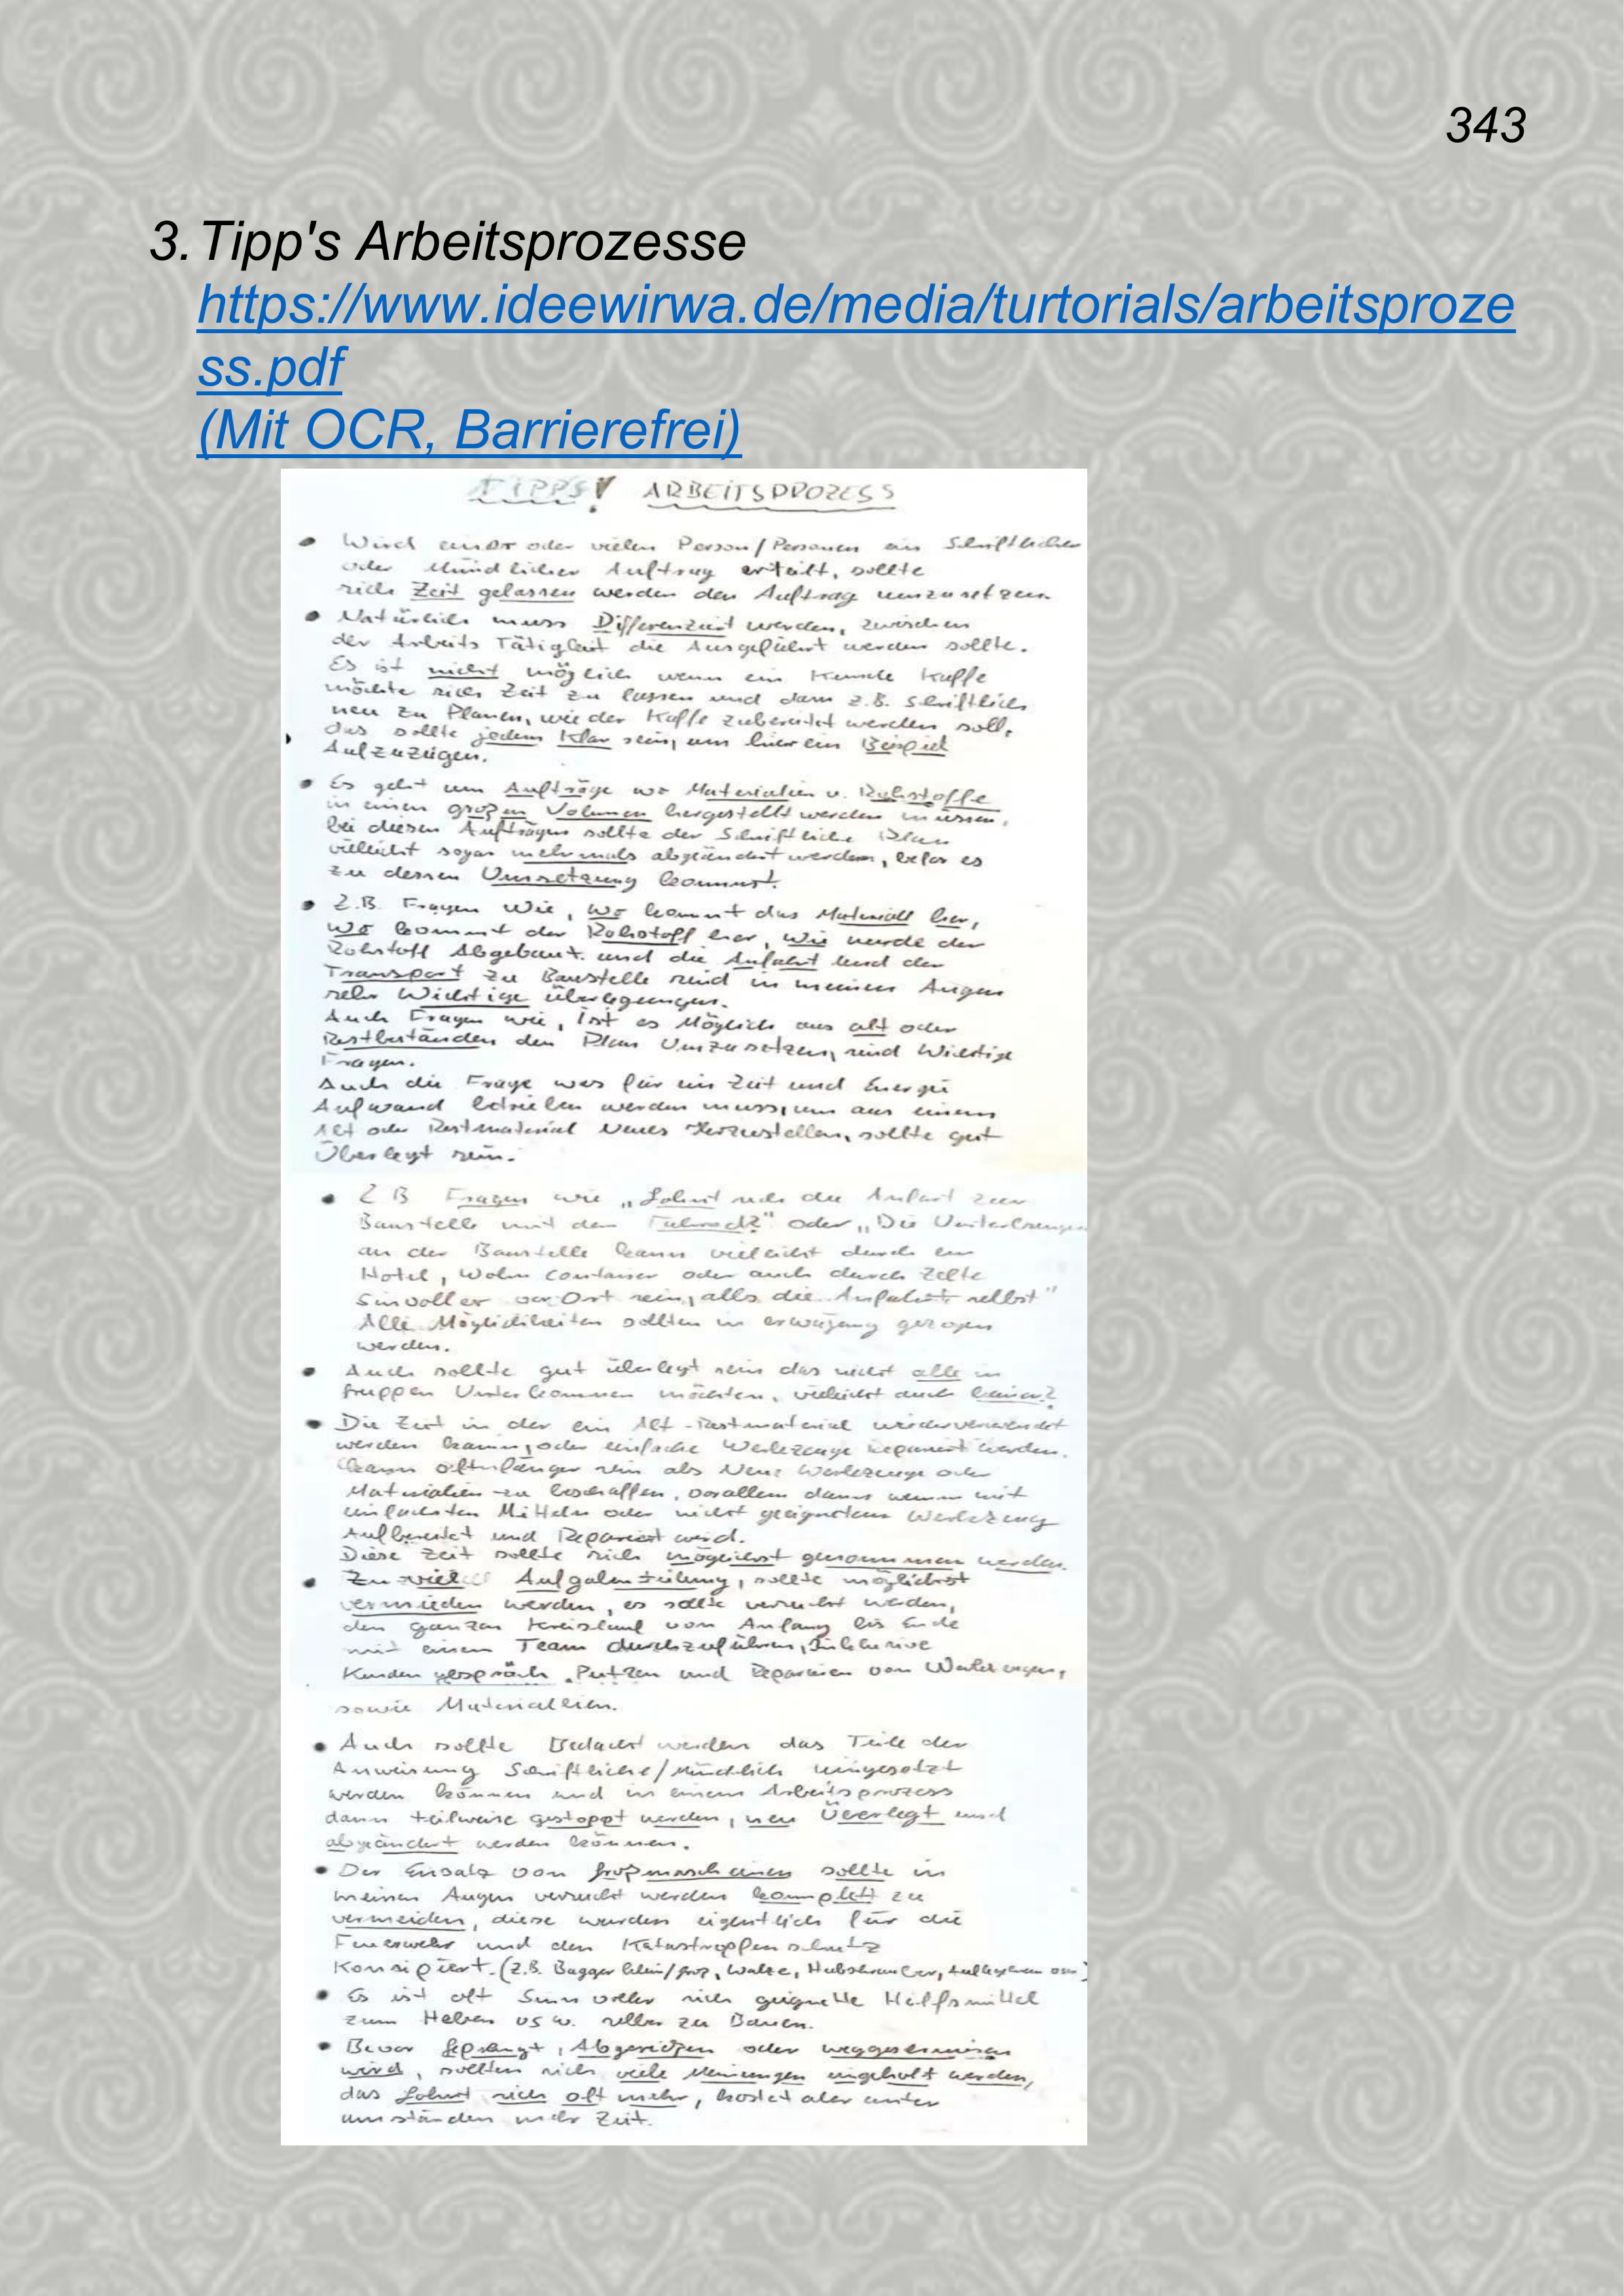 343
3. Tipp's Arbeitsprozesse
https://www.ideewirwa.de/media/turtorials/arbeitsproze
ss.pdf
(Mit OCR, Barrierefrei)
TIPPS! ARBEITSPROZESS
• Wird einer oder vielen Person/Personen ein Schriftlicher
oder Mündlicher Auftrag erteilt, sollte
sich Zeit gelassen werden den Auftrag umzusetzen.
• Natürlich muss Differenziert werden, zwischen
der Arbeits Tätigkeit die Ausgeführt werden sollte.
Es ist nicht möglich wenn ein Kunde Kaffe
möchte sich Zeit zu lassen und dann z.B. Schriftlich
neu zu Planen, wie der Kaffe zubereitet werden soll,
das sollte jedem Klar sein, um hier ein Beispiel
Aufzuzügen.
• Es geht um Aufträge wo Materialien u. Rohstoffe
in einen großen Volumen hergestellt werden müssen,
bei diesen Aufträgen sollte der Schriftliche Plan
vielleicht sogar mehrmals abgeändert werden, befor es
zu dessen Umsetzung kommt.
• Z.B. Fragen Wie, wo kommt das Materiall her,
wo kommt der Rohstoff her, wie wurde der
Rohstoff Abgebaut. und die Anfahrt und der
Transport zu Baustelle sind in meinen Augen
sehr Wichtige überlegungen.
Auch Fragen wie, ist es Möglich aus alt oder
Restbeständen den Plan Umzusetzen, sind Wichtige
Fragen.
Auch die Frage was für ein Zeit und Energie
Aufwand betrieben werden muss, um aus einem
Alt oder Restmaterial Neues Herzustellen, sollte gut
Überlegt sein.
• Z B Fragen wie „Lohnt sich die Anfart zur
Baustelle mit den Fahrrad?" oder „Die
an der Baustelle kann vielleicht durch ein
Hotel, Wohn container oder auch durch Zelte
Sinvoller vor Ort sein, alls die Anfahrt selbst"
Alle Möglichkeiten sollten in erwägung gezogen
werden.
• Auch sollte gut überlegt sein das nicht alle in
Gruppen Unterkommen möchten, vielleicht auch keiner?
• Die Zeit in der ein Alt-Restmaterial wiederverwendet
werden kann, oder einfache Werkzeuge Repariert werden.
kann oft länger sein als Neue Werkzeuge oder
Materialien zu beschaffen, vorallem dann wenn mit
einfachsten Mitteln oder nicht geeigneten Werkzeug
Aufbereitet und Repariert wird.
Diese Zeit sollte sich möglichst genommen werden.
• Zu viel Aufgabenteilung, sollte möglichst
vermieden werden, es sollte versucht werden,
den ganzen Kreislauf von Anfang bis Ende
mit einen Team durchzuführen, Inklusive
Kunden gespräch, Putzen und Reparieren von Werkzeugen,
sowie Materiallien.
• Auch sollte Bedacht werden das Teile der
Anweisung Schriftliche/Mündlich eingesetzt
werden können und in einem Arbeitsprozess
dann teilweise gestoppt werden, neu Überlegt und
abgeändert werden können.
• Der Einsatz von Großmaschienen sollte in
meinen Augen versucht werden komplett zu
vermeiden, diese wurden eigentlich für die
Feuerwehr und den Katastroppenschutz
Konsipiert. (Z.B. Bagger klein/groß, Walze, Hubschrauber,
• Es ist oft Sinnvoller sich geignette Hilfsmittel
zum Heben usw. selber zu Bauen.
• Bevor Gesprengt, Abgerissen oder weggeschmissen
wird, sollten sich viele Meinungen eingeholt werden,
das Lohnt sich oft mehr, kostet aber unter
umständen mehr Zeit.